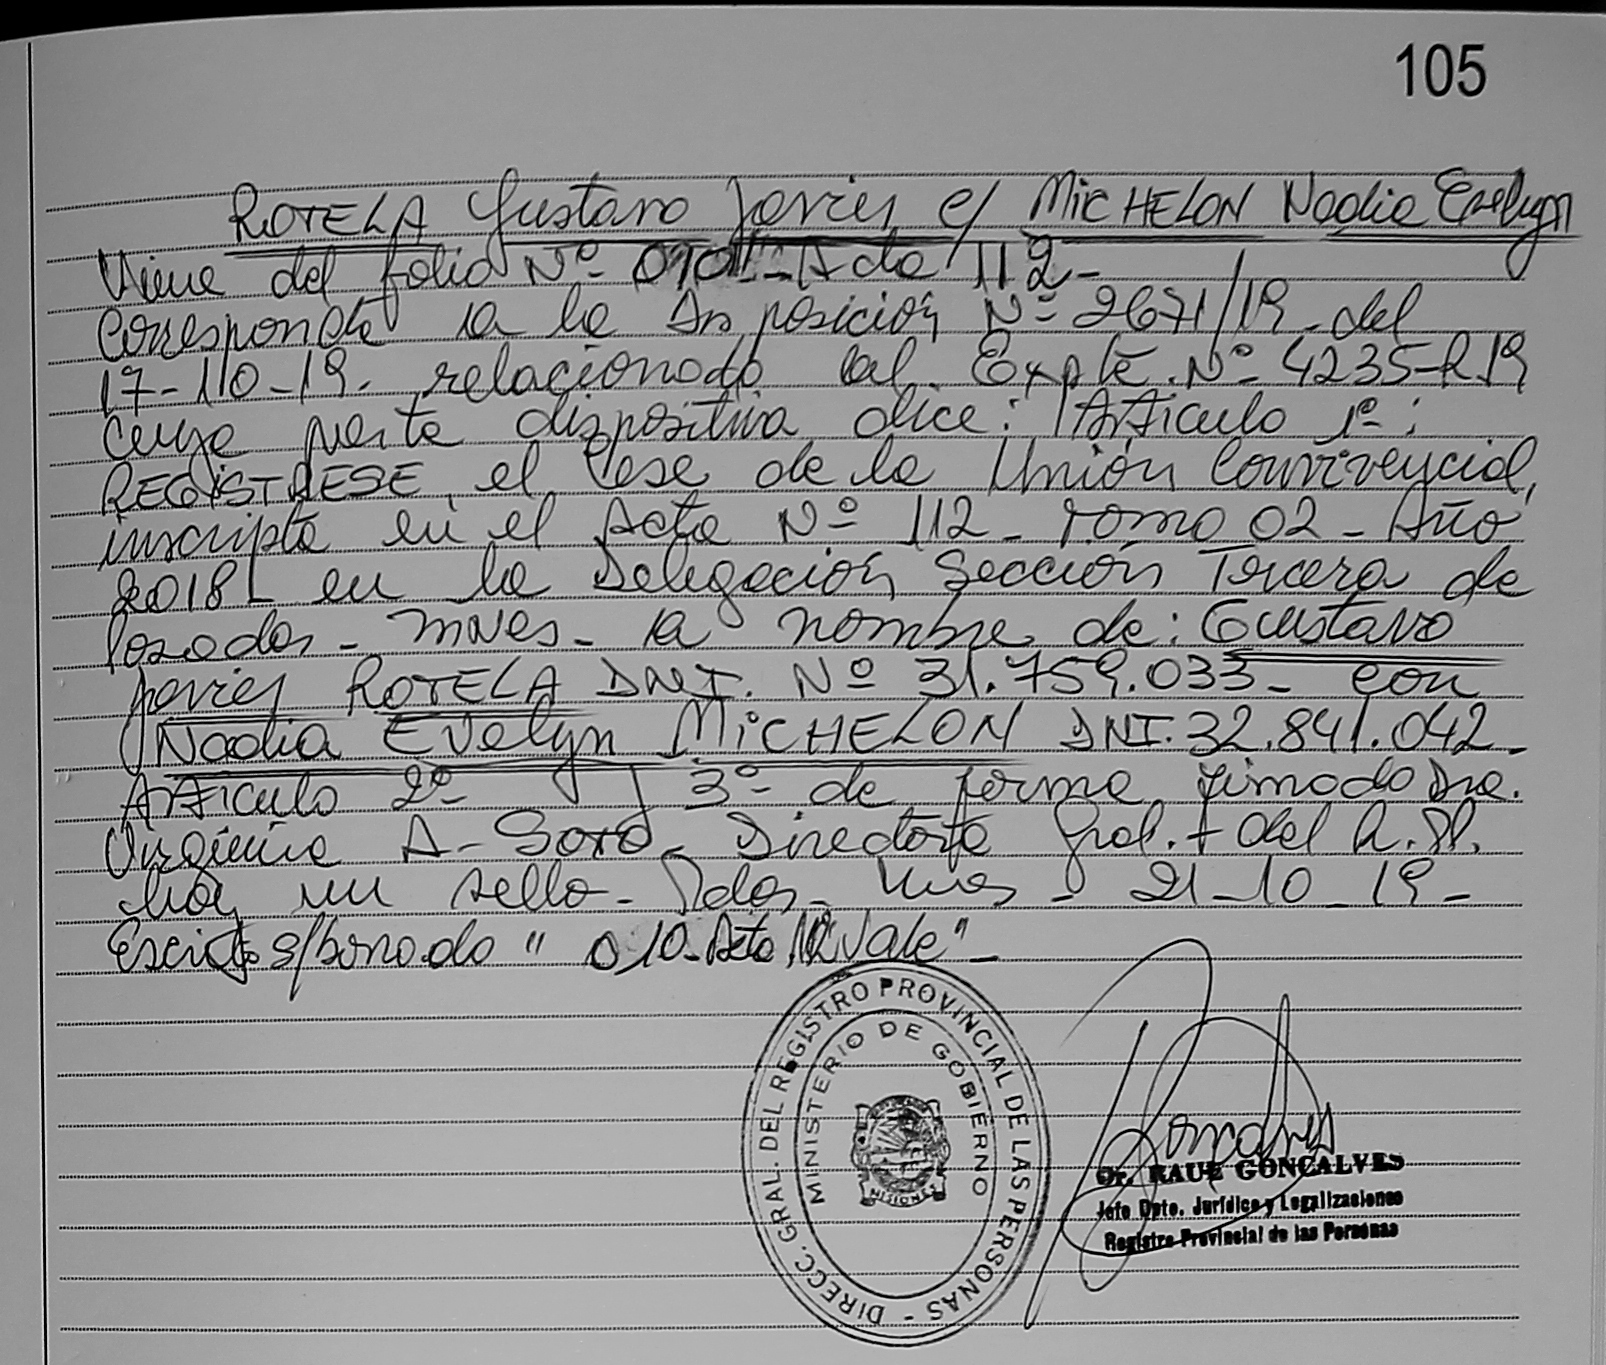 105
ROTELA Gustavo Javier c/ MICHELON Nadia Evelyn
Viene del folio Nº 010 - Acta 112 -
Corresponde a la Disposición Nº 2671/19 - del
17-10-19 - relacionado al Expte. Nº 4235-R-19
cuya parte dispositiva dice: Artículo 1º:
REGÍSTRESE, el Cese de la Unión Convivencial,
inscripta en el Acta Nº 112 - Tomo 02 - Año
2018 en la Delegación Sección Tercera de
Posadas - Mnes - a nombre de: Gustavo
Javier ROTELA DNI. Nº 31.759.033 - con
Nadia Evelyn MICHELON DNI. 32.841.042 -
Artículo 2º y 3º de forma firmado Dra.
Virginia A. Soto - Directora Gral. del R.P.
hay un sello - Pdas - Mnes - 21-10-19 -
Escrito s/borrado " 010 - Acta 112 Vale" -
DIRECC. GRAL. DEL REGISTRO PROVINCIAL DE LAS PERSONAS -
MINISTERIO DE GOBIERNO
MISIONES
Dr. RAUL GONCALVES
Jefe Dpto. Jurídico y Legalizaciones
Registro Provincial de las Personas